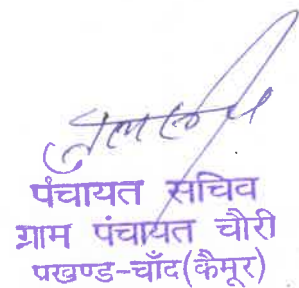 पंचायत सचिव
ग्राम पंचायत चौरी
पखण्ड-चाँद(कैमूर)